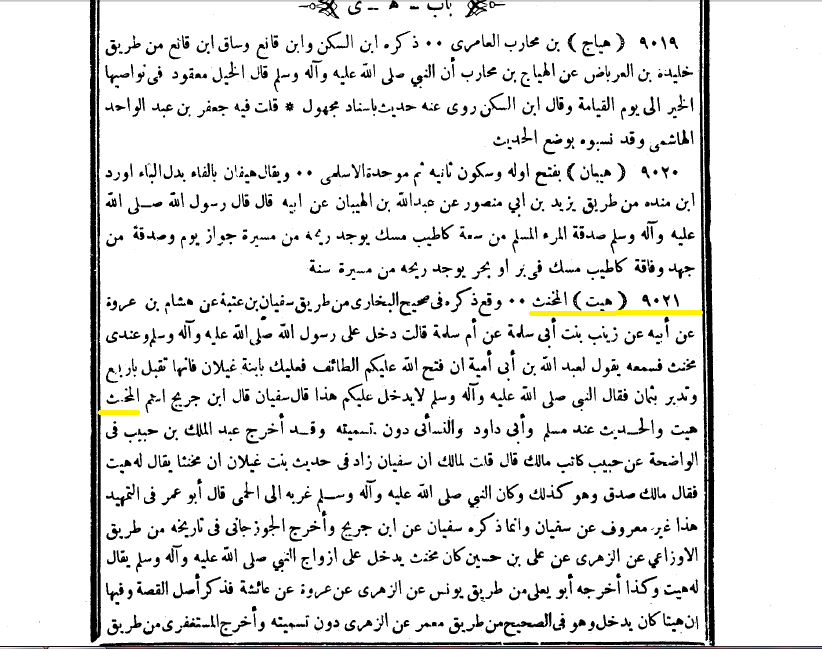 باب ـ هـ ـ ى
٩٠١٩ ( هياج ) بن محارب العامرى ٠٠ ذكره ابن السكن وابن قانع وساق ابن قانع من طريق
خليده بن العرباض عن الهياج بن محارب أن النبي صلى الله عليه وآله وسلم قال الخيل معقود فى نواصيها
الخير الى يوم القيامة وقال ابن السكن روى عنه حديث باسناد مجهول * قلت فيه جعفر بن عبد الواحد
الهاشمى وقد نسبوه بوضع الحديث
٩٠٢٠ ( هيبان ) بفتح اوله وسكون ثانيه ثم موحدة الاسلمى ٠٠ ويقال هيفان بالفاء بدل الباء اورد
ابن منده من طريق يزيد بن ابي منصور عن عبدالله بن الهيبان عن ابيه قال قال رسول الله صلى الله
عليه وآله وسلم صدقة المرء المسلم من سعة كاطيب مسك يوجد ريحه من مسيرة جواز يوم وصدقة من
جهد وفاقة كاطيب مسك فى بر او بحر يوجد ريحه من مسيرة سنة
٩٠٢١ ( هيت ) المخنث ٠٠ وقع ذكره فى صحيح البخارى من طريق سفيان بن عتبة عن هشام بن عروة
عن أبيه عن زينب بنت أبى سلمة عن أم سلمة قالت دخل على رسول الله صلى الله عليه وآله وسلم وعندى
مخنث فسمعه يقول لعبد الله بن أبى أمية ان فتح الله عليكم الطائف فعليك بابنة غيلان فانها تقبل باربع
وتدبر بثمان فقال النبي صلى الله عليه وآله وسلم لايدخل عليكم هذا قال سفيان قال ابن جريج اسم المخنث
هيت والحديث عند مسلم وأبى داود والنسأئى دون تسميته وقد أخرج عبد الملك بن حبيب فى
الواضحة عن حبيب كاتب مالك قال قلت لمالك ان سفيان زاد فى حديث بنت غيلان ان مخنثا يقال له هيت
فقال مالك صدق وهو كذلك وكان النبي صلى الله عليه وآله وسلم غربه الى الحمى قال أبو عمر فى التمهيد
هذا غير معروف عن سفيان وانما ذكره سفيان عن ابن جريج وأخرج الجوزجانى فى تاريخه من طريق
الاوزاعي عن الزهرى عن على بن حسين كان مخنث يدخل على ازواج النبي صلى الله عليه وآله وسلم يقال
له هيت وكذا أخرجه أبو يعلى من طريق يونس عن الزهرى عن عروة عن عائشة فذكر أصل القصة وفيها
ان هيتا كان يدخل وهو فى الصحيح من طريق معمر عن الزهرى دون تسميته وأخرج المستغفرى من طريق